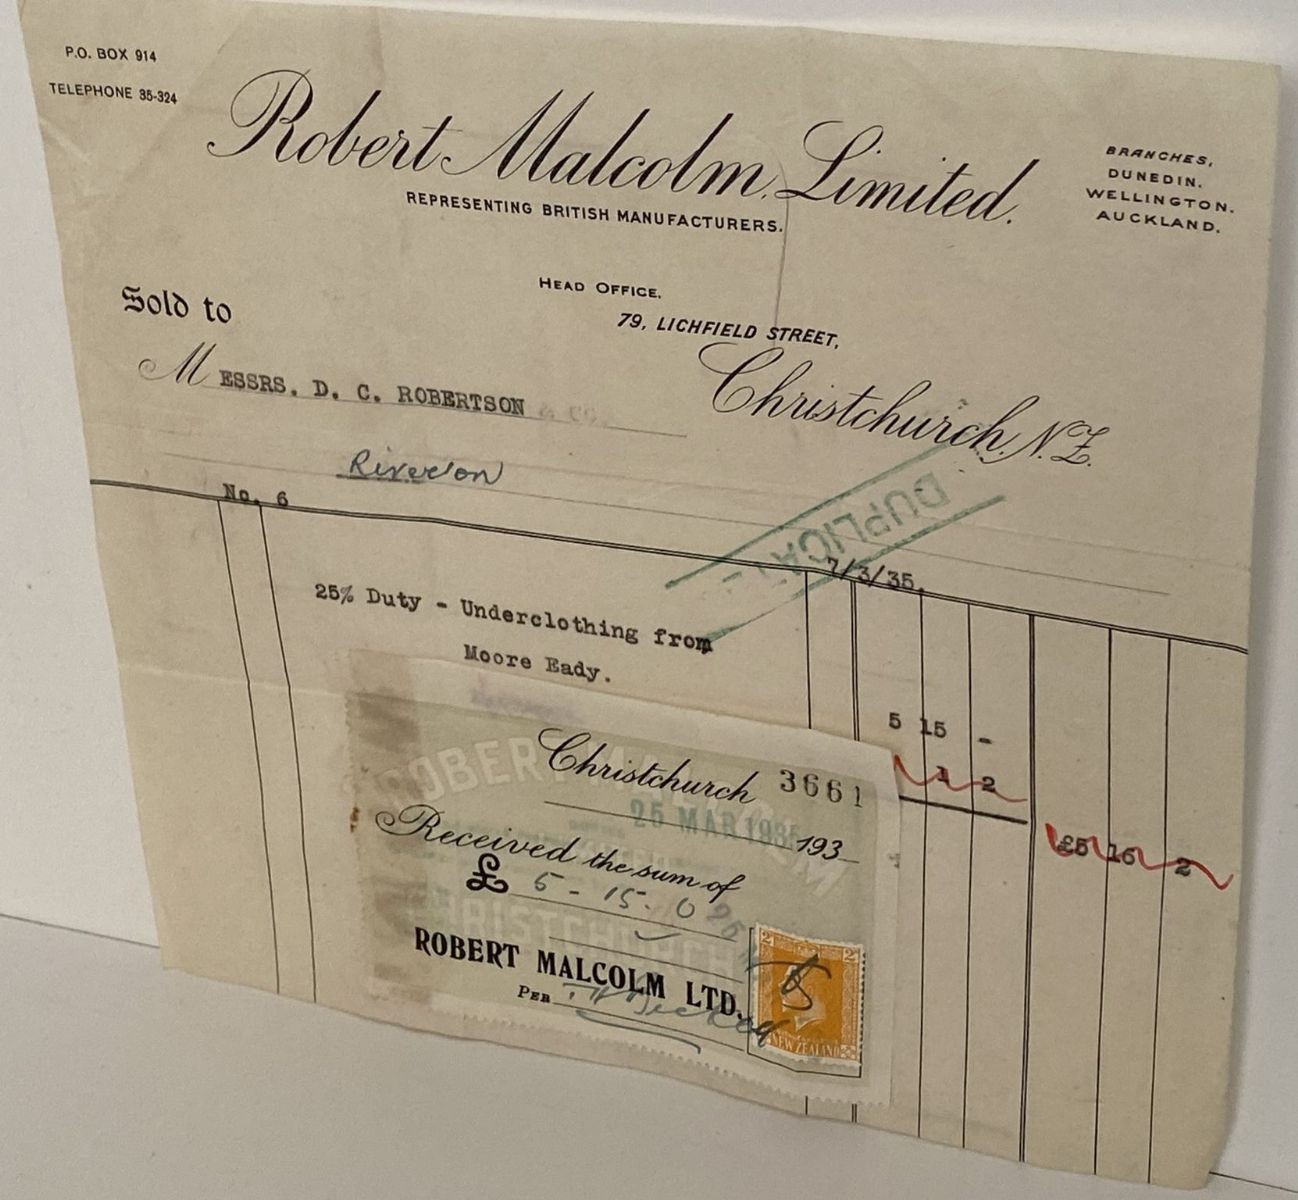 P.O. BOX 914
TELEPHONE 35-324
Robert Malcolm, Limited.
REPRESENTING BRITISH MANUFACTURERS.
BRANCHES,
DUNEDIN.
WELLINGTON.
AUCKLAND.
HEAD OFFICE,
79, LICHFIELD STREET,
Christchurch, N.Z.
Sold to
MESSRS. D. C. ROBERTSON & CO.
Riverton
No. 6
DUPLICATE
7/3/35.
25% Duty - Underclothing from
Moore Eady.
5 15 -
1 2
£5 16 2
Christchurch 3661
25 MAR 1935
193
Received the sum of
£ 5 - 15. 0
ROBERT MALCOLM
CHRISTCHURCH
ROBERT MALCOLM LTD.
PER
2 2
NEW ZEALAND